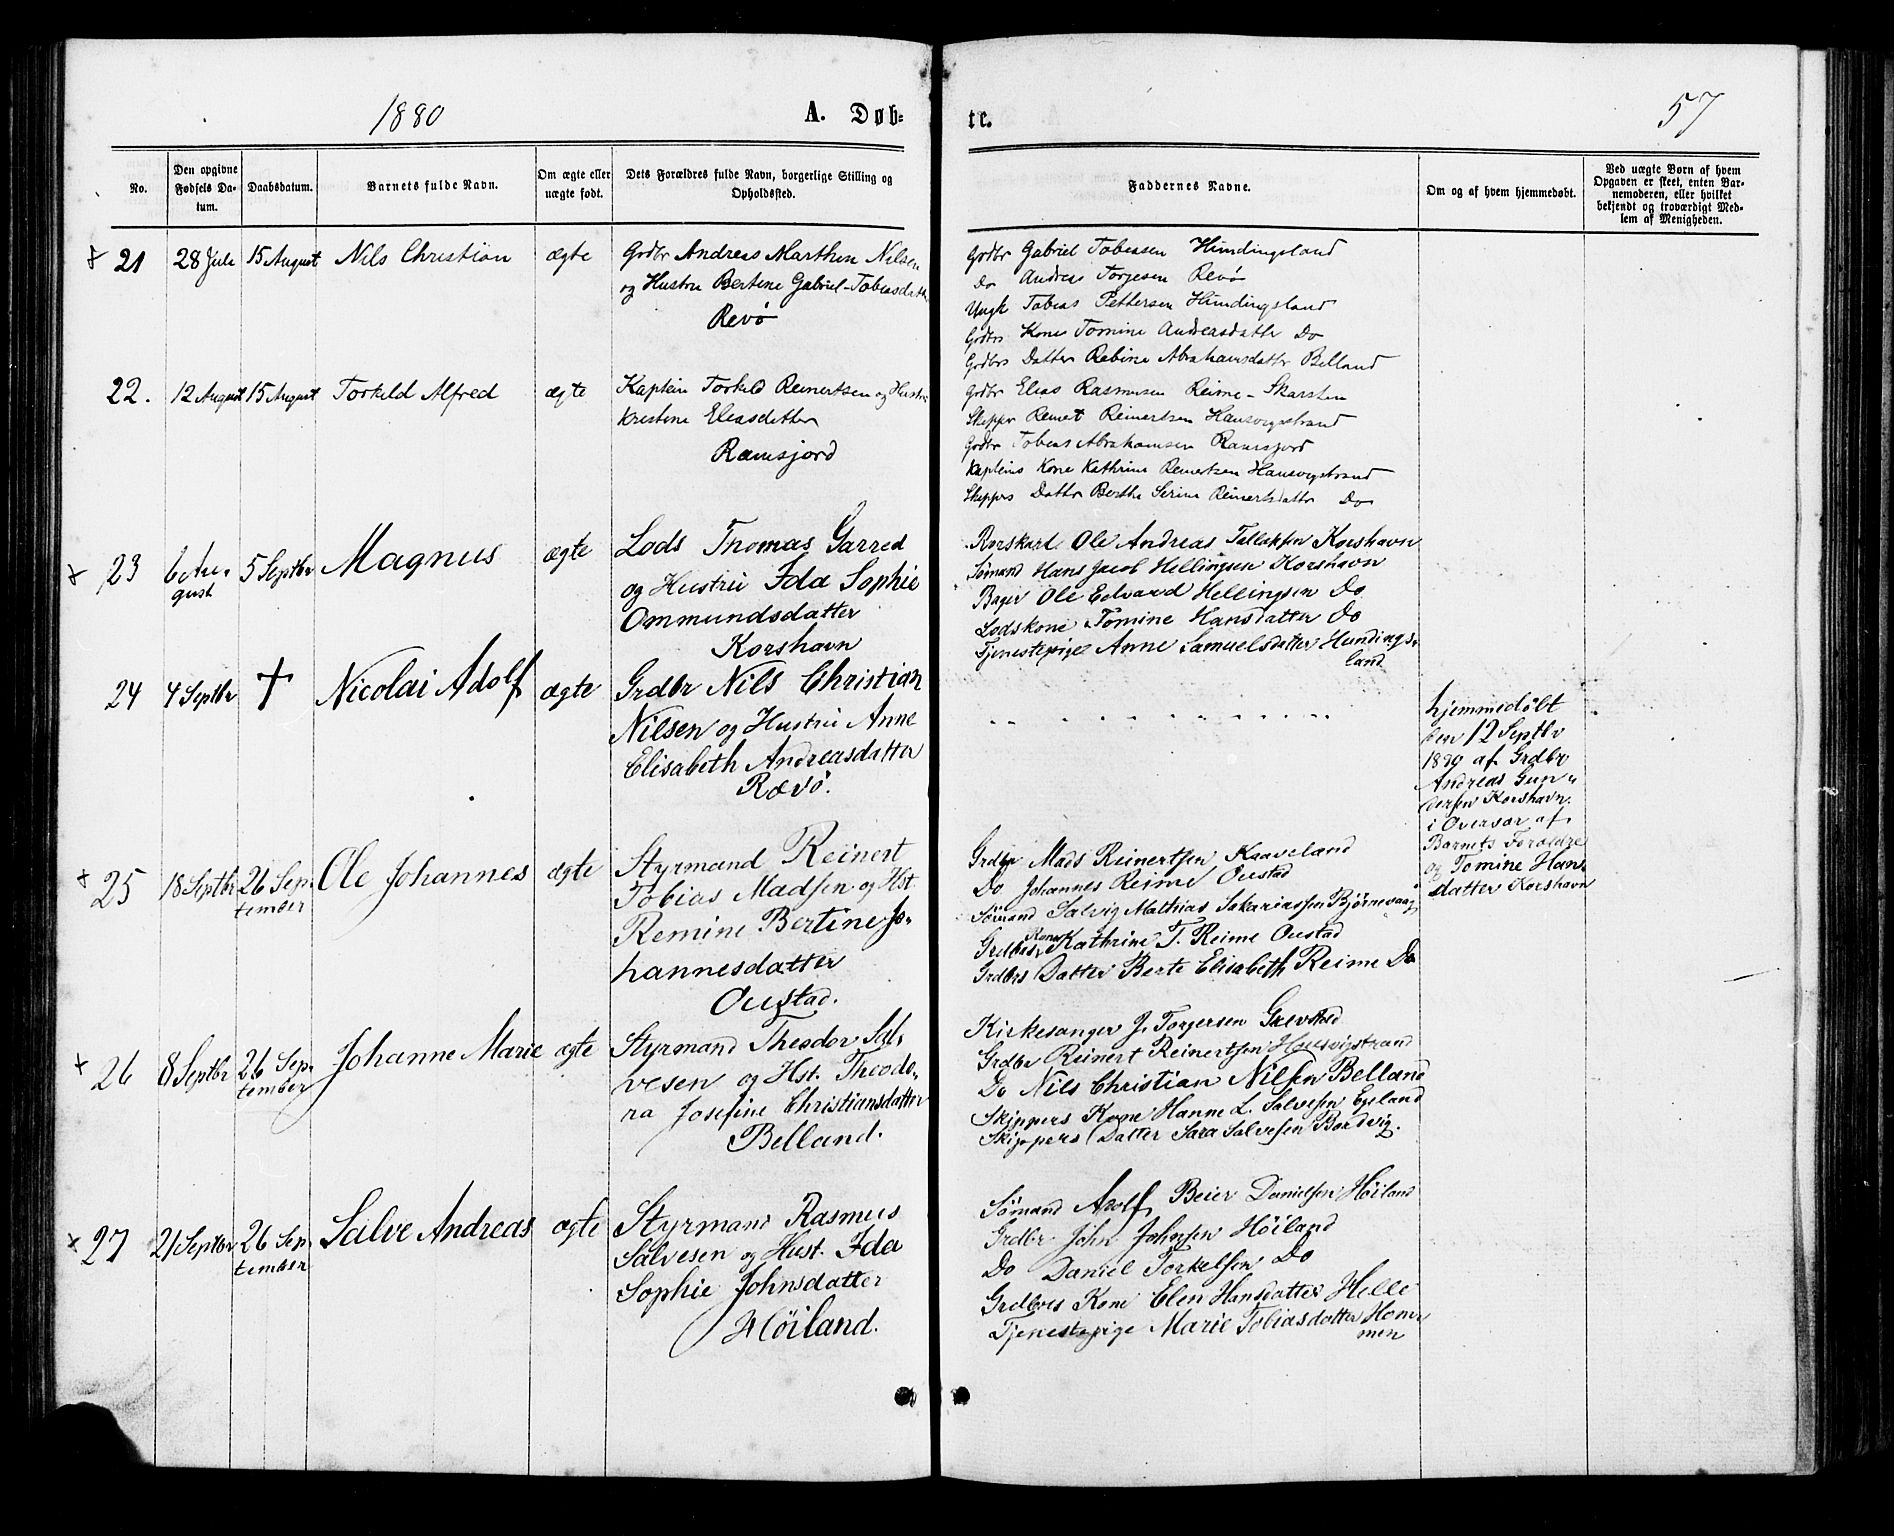 1880
A. Døb-
te.
57
No.
Den opgivne Fødsels Da-tum.
Daabsdatum.
Barnets fulde Navn.
Om ægte eller uægte født.
Dets Forældres fulde Navn, borgerlige Stilling og Opholdssted.
Faddernes Navne.
Om og af hvem hjemmedøbt.
Ved uægte Børn af hvem Opgaven er skeet, enten Bar-nemoderen, eller hvilket bekjendt og troværdigt Med-lem af Menigheden.
21 28 Juli 15 August Nils Christian ægte
Grdbr Andreas Marthin Nilsen
og Hustru Bertine Gabriel-Tobiasdattr
Revø
Grdbr Gabriel Tobiassen Hundingsland
Do Andreas Torjesen Revø
Ungk Tobias Pettersen Hundingsland
Grdbrs Kone Tomine Andreasdattr Do
Grdbrs Datter Rebine Abrahamsdattr Belland
22. 12 August 15 August Torkild Alfred ægte
Kaptein Torkild Reinertsen og Hustru
Kristine Eliasdatter
Ramsjord
Grdbr Elias Rasmusen Reime-Skarsten
Skipper Reinert Reinertsen Hausvigstrand
Grdbr Tobias Abrahamsen Ramsjord
Kapteins Kone Kathrine Reinertsen Hausvigstrand
Skippers Dattr Berthe Serine Reinertsdattr Do
23 6 Au-
gust 5 Septbr Magnus ægte
Lods Thomas Garred
og Hustru Ida Sophie
Ommundsdatter
Korshavn
Rorskarl Ole Andreas Tallaksen Korshavn
Sømand Hans Jacob Hellingsen Korshavn
Bager Ole Edvard Hellingsen Do
Lodskone Tomine Hansdatter Do
Tjenestepige Anne Samuelsdatter Hundings-
land
24 4 Septbr † Nicolai Adolf ægte
Grdbr Nils Christian
Nilsen og Hustru Anne
Elisabeth Andreasdatter
Rævø.
hjemmedøbt
den 12 Septbr
1880 af Grdbr
Andreas Gun-
dersen Korshavn.
i Overvær af
Barnets Forældre
og Tomine Hans
datter Korshavn
25 18 Septbr 26 Sep-
tember Ole Johannes ægte
Styrmand Reinert
Tobias Madsen og Hst
Remine Bertine Jo-
hannesdatter
Oustad.
Grdbr Mads Reinertsen Kaaveland
Do Johannes Reime Oustad
Sømand Salvig Mathias Sakariassen Bjørnevaag
Grdbrs Kone Kathrine T. Reime Oustad
Grdbrs Datter Berte Elisabeth Reime Do
26 8 Septbr 26 Sep-
tember Johanne Marie ægte
Styrmand Theodor Sal-
vesen og Hst. Theodo-
ra Josefine Christiansdatter
Belland.
Kirkesanger J. Torgersen
Grdbr Reinert Reinertsen Hausvigstrand
Do Nils Christian Nilsen Belland
Skippers Kone Hanne L. Salvesen Egeland
Skippers Datter Sara Salvesen
27 21 Septbr 26 Sep-
tember Salve Andreas ægte
Styrmand Rasmus
Salvesen og Hust. Ida
Sophie Johnsdatter
Høiland.
Sømand Adolf Beier Danielsen Høiland
Grdbr John Johnsen Høiland
Do Daniel Torkelsen Do
Grdbres Kone Elen Hansdatter Helle
Tjenestepige Marie Tobiasdatter Hom-
men